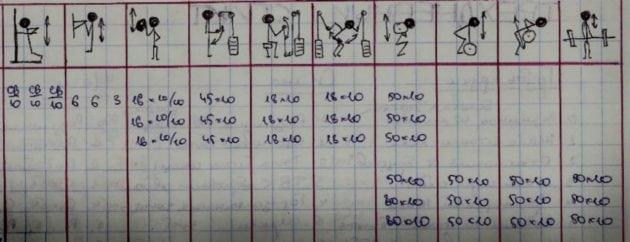 СВ/10 СВ/10 СВ/10 6 6 3 18×10/10 45×10 18×10 18×10 50×10
18×10/10 45×10 18×10 18×10 50×10
18×10/10 45×10 18×10 18×10 50×10
50×10 50×10 50×10 80×10
80×10 50×10 50×10 50×10
80×10 50×10 50×10 50×10